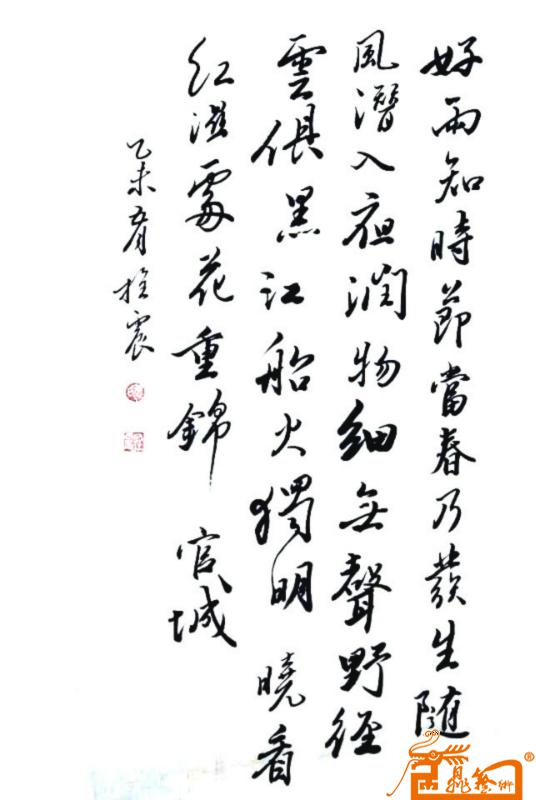 好雨知時節當春乃發生隨
風潛入夜潤物細無聲野徑
雲俱黑江船火獨明曉看
紅濕處花重錦官城
乙未震